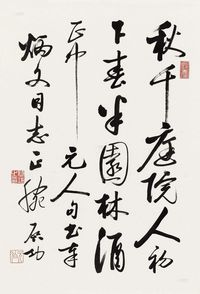 秋千庭院人初
下春半園林酒
正中 元人句書奉
炳文同志正腕 启功